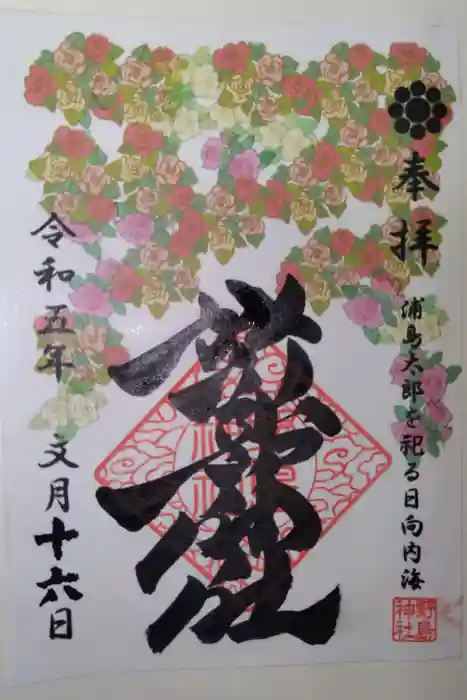 奉拝
浦島太郎を祀る日向内海
野島神社
令和五年
文月十六日
野島神社